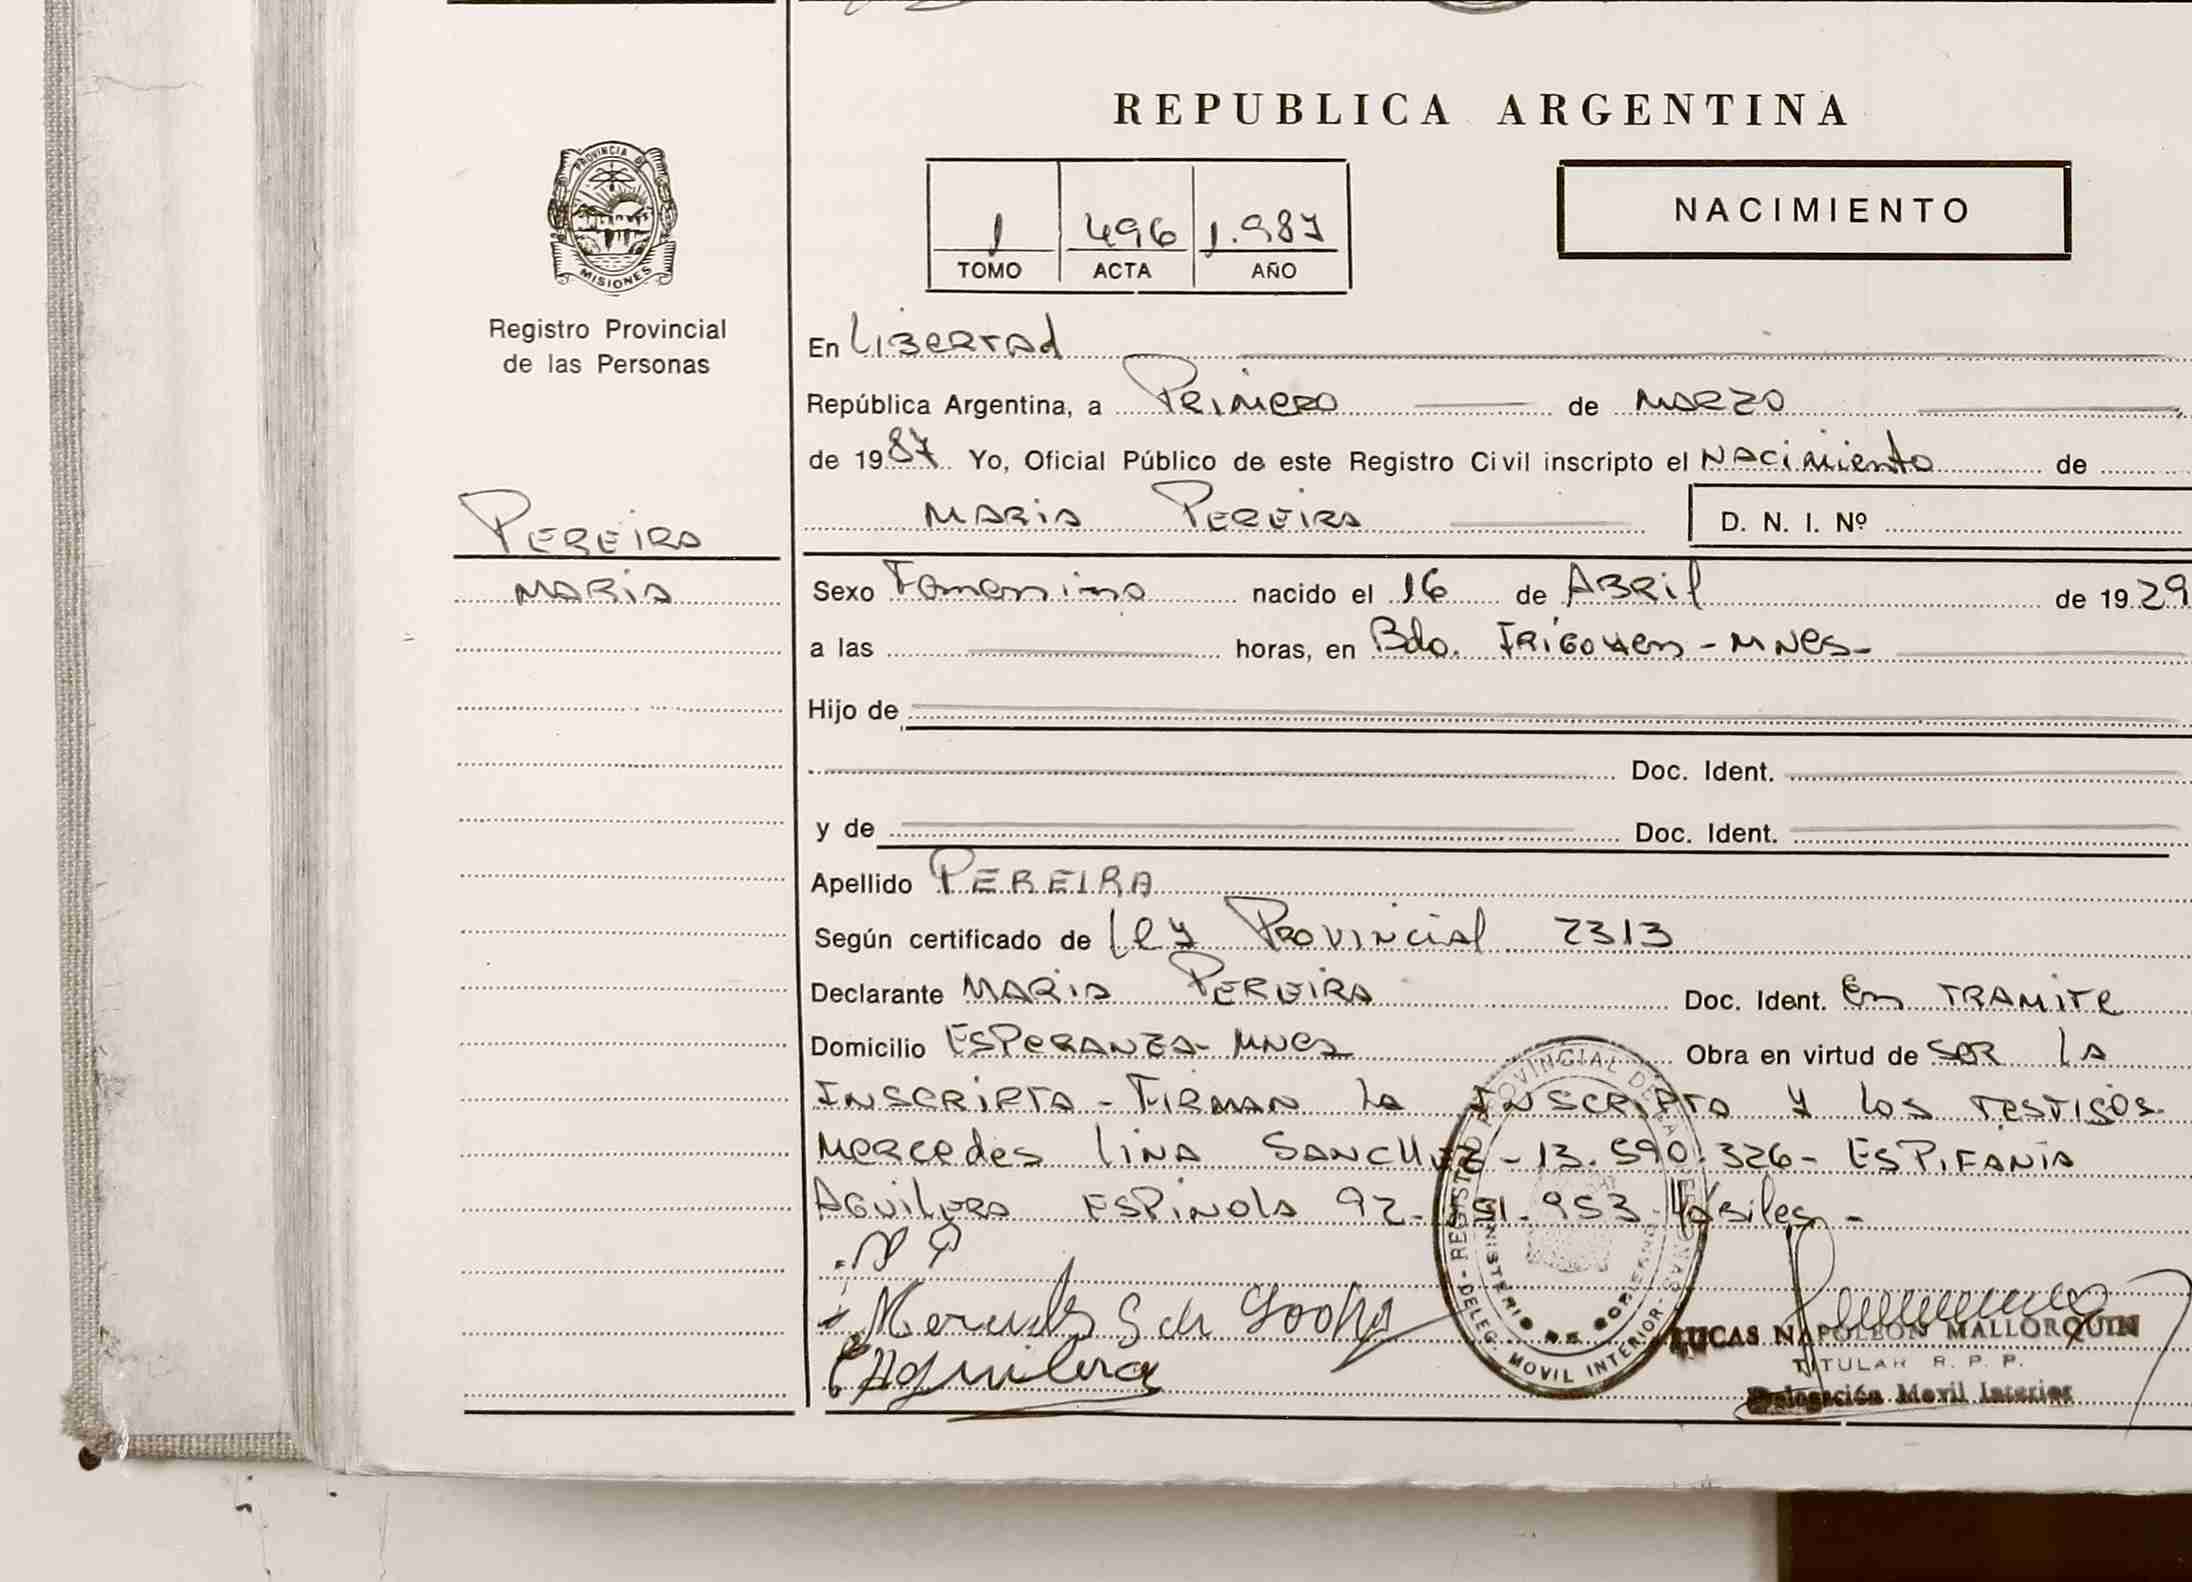 REPUBLICA ARGENTINA
PROVINCIA DE
MISIONES
Registro Provincial
de las Personas
1 496 1.987
TOMO ACTA AÑO
NACIMIENTO
En Libertad
República Argentina, a Primero de Marzo
de 1987 Yo, Oficial Público de este Registro Civil inscripto el Nacimiento de
Maria Pereira D. N. I. Nº
Pereira
Maria
Sexo Femenino nacido el 16 de Abril de 1929
a las horas, en Bdo. Irigoyen - Mnes -
Hijo de
Doc. Ident.
y de Doc. Ident.
Apellido PEREIRA
Según certificado de Ley Provincial 2313
Declarante Maria Pereira Doc. Ident. En Tramite
Domicilio Esperanza - Mnes Obra en virtud de ser la
Inscripta - Firman la Inscripta y los testigos
Mercedes Lina Sanchez - 13.590.326 - Espifania
Aguilera Espinola 92. 953
Mercedes S de
Aguilera
REGISTRO PROVINCIAL DE LAS PERSONAS
MINISTERIO DE GOBIERNO
DELEG. MOVIL INTERIOR
LUCAS NAPOLEON MALLORQUIN
TITULAR R. P. P.
Delegación Movil Interior